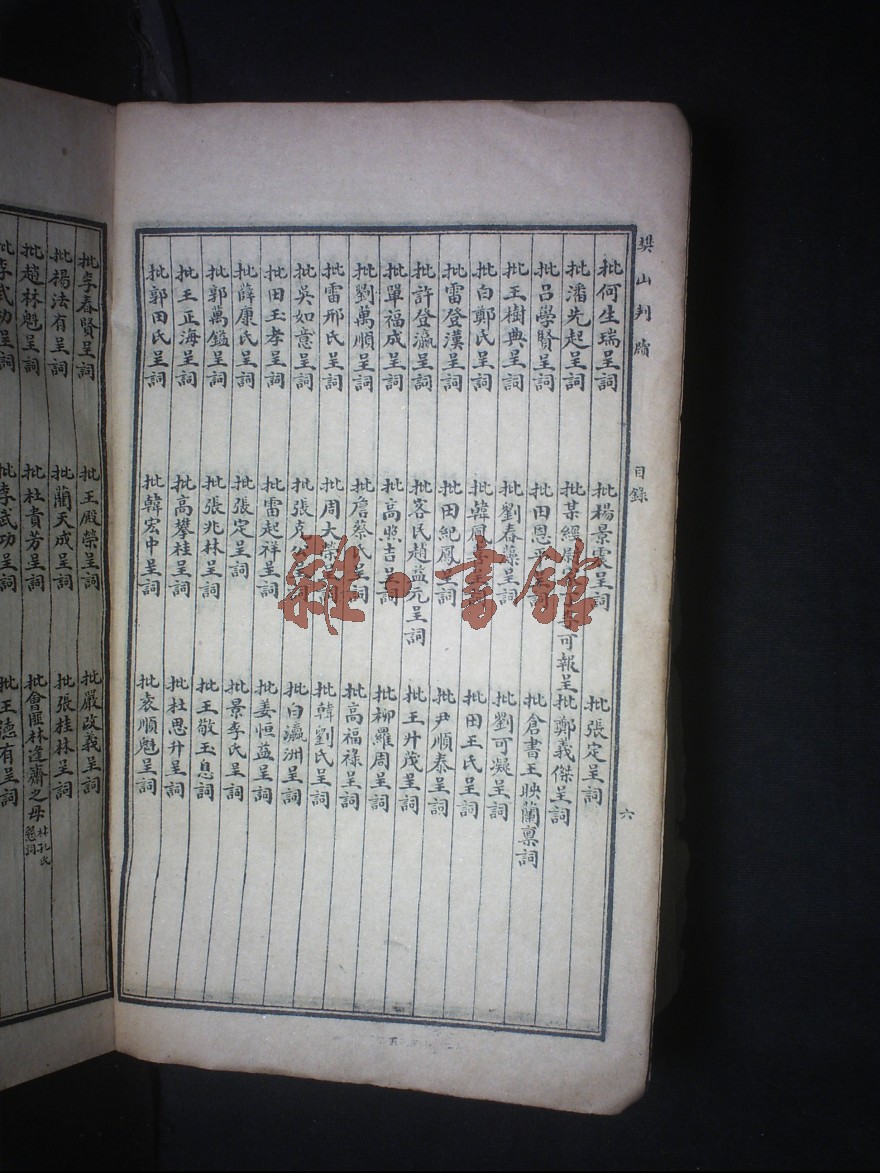 樊山判牘
目錄
六
批何生瑞呈詞 批楊景震呈詞 批張定呈詞
批潘先起呈詞 批某經 可報呈 批鄭義傑呈詞
批呂學賢呈詞 批田恩 呈詞 批倉書王映蘭稟詞
批王樹典呈詞 批劉春藻呈詞 批劉可凝呈詞
批白鄭氏呈詞 批韓鳳 呈詞 批田王氏呈詞
批雷登漢呈詞 批田紀鳳呈詞 批尹順泰呈詞
批許登瀛呈詞 批客民趙益元呈詞 批王廾茂呈詞
批單福成呈詞 批高照吉呈詞 批柳羅周呈詞
批劉萬順呈詞 批詹蔡氏呈詞 批高福祿呈詞
批雷邢氏呈詞 批周大榮呈詞 批韓劉氏呈詞
批吳如意呈詞 批張 呈詞 批白瀛洲呈詞
批田玉孝呈詞 批雷起祥呈詞 批姜恒益呈詞
批薛康氏呈詞 批張定呈詞 批景李氏呈詞
批郭萬鎰呈詞 批張兆林呈詞 批王敬玉息詞
批王正海呈詞 批高攀桂呈詞 批杜思升呈詞
批郭田氏呈詞 批韓宏中呈詞 批袁順魁呈詞
批李春賢呈詞 批王殿榮呈詞 批嚴改義呈詞
批楊法有呈詞 批藺天成呈詞 批張桂林呈詞
批趙林魁呈詞 批杜貴芳呈詞 批會匪林逢齋之母林孔氏懇詞
批李武功呈詞 批李武功呈詞 批王德有呈詞
雜·書館